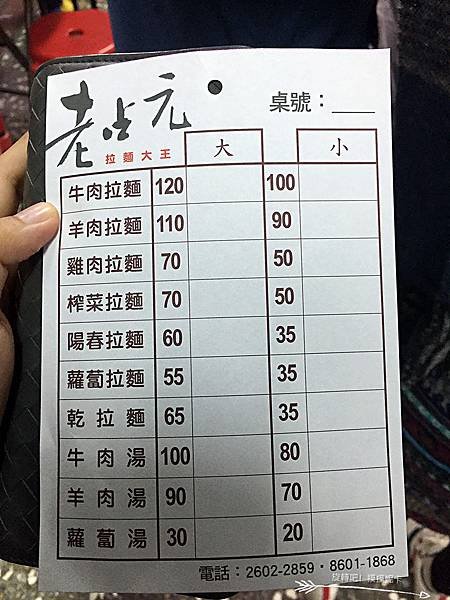 老占元
拉麵大王
桌號：
大 小
牛肉拉麵 120 100
羊肉拉麵 110 90
雞肉拉麵 70 50
榨菜拉麵 70 50
陽春拉麵 60 35
蘿蔔拉麵 55 35
乾拉麵 65 35
牛肉湯 100 80
羊肉湯 90 70
蘿蔔湯 30 20
電話：2602-2859・8601-1868